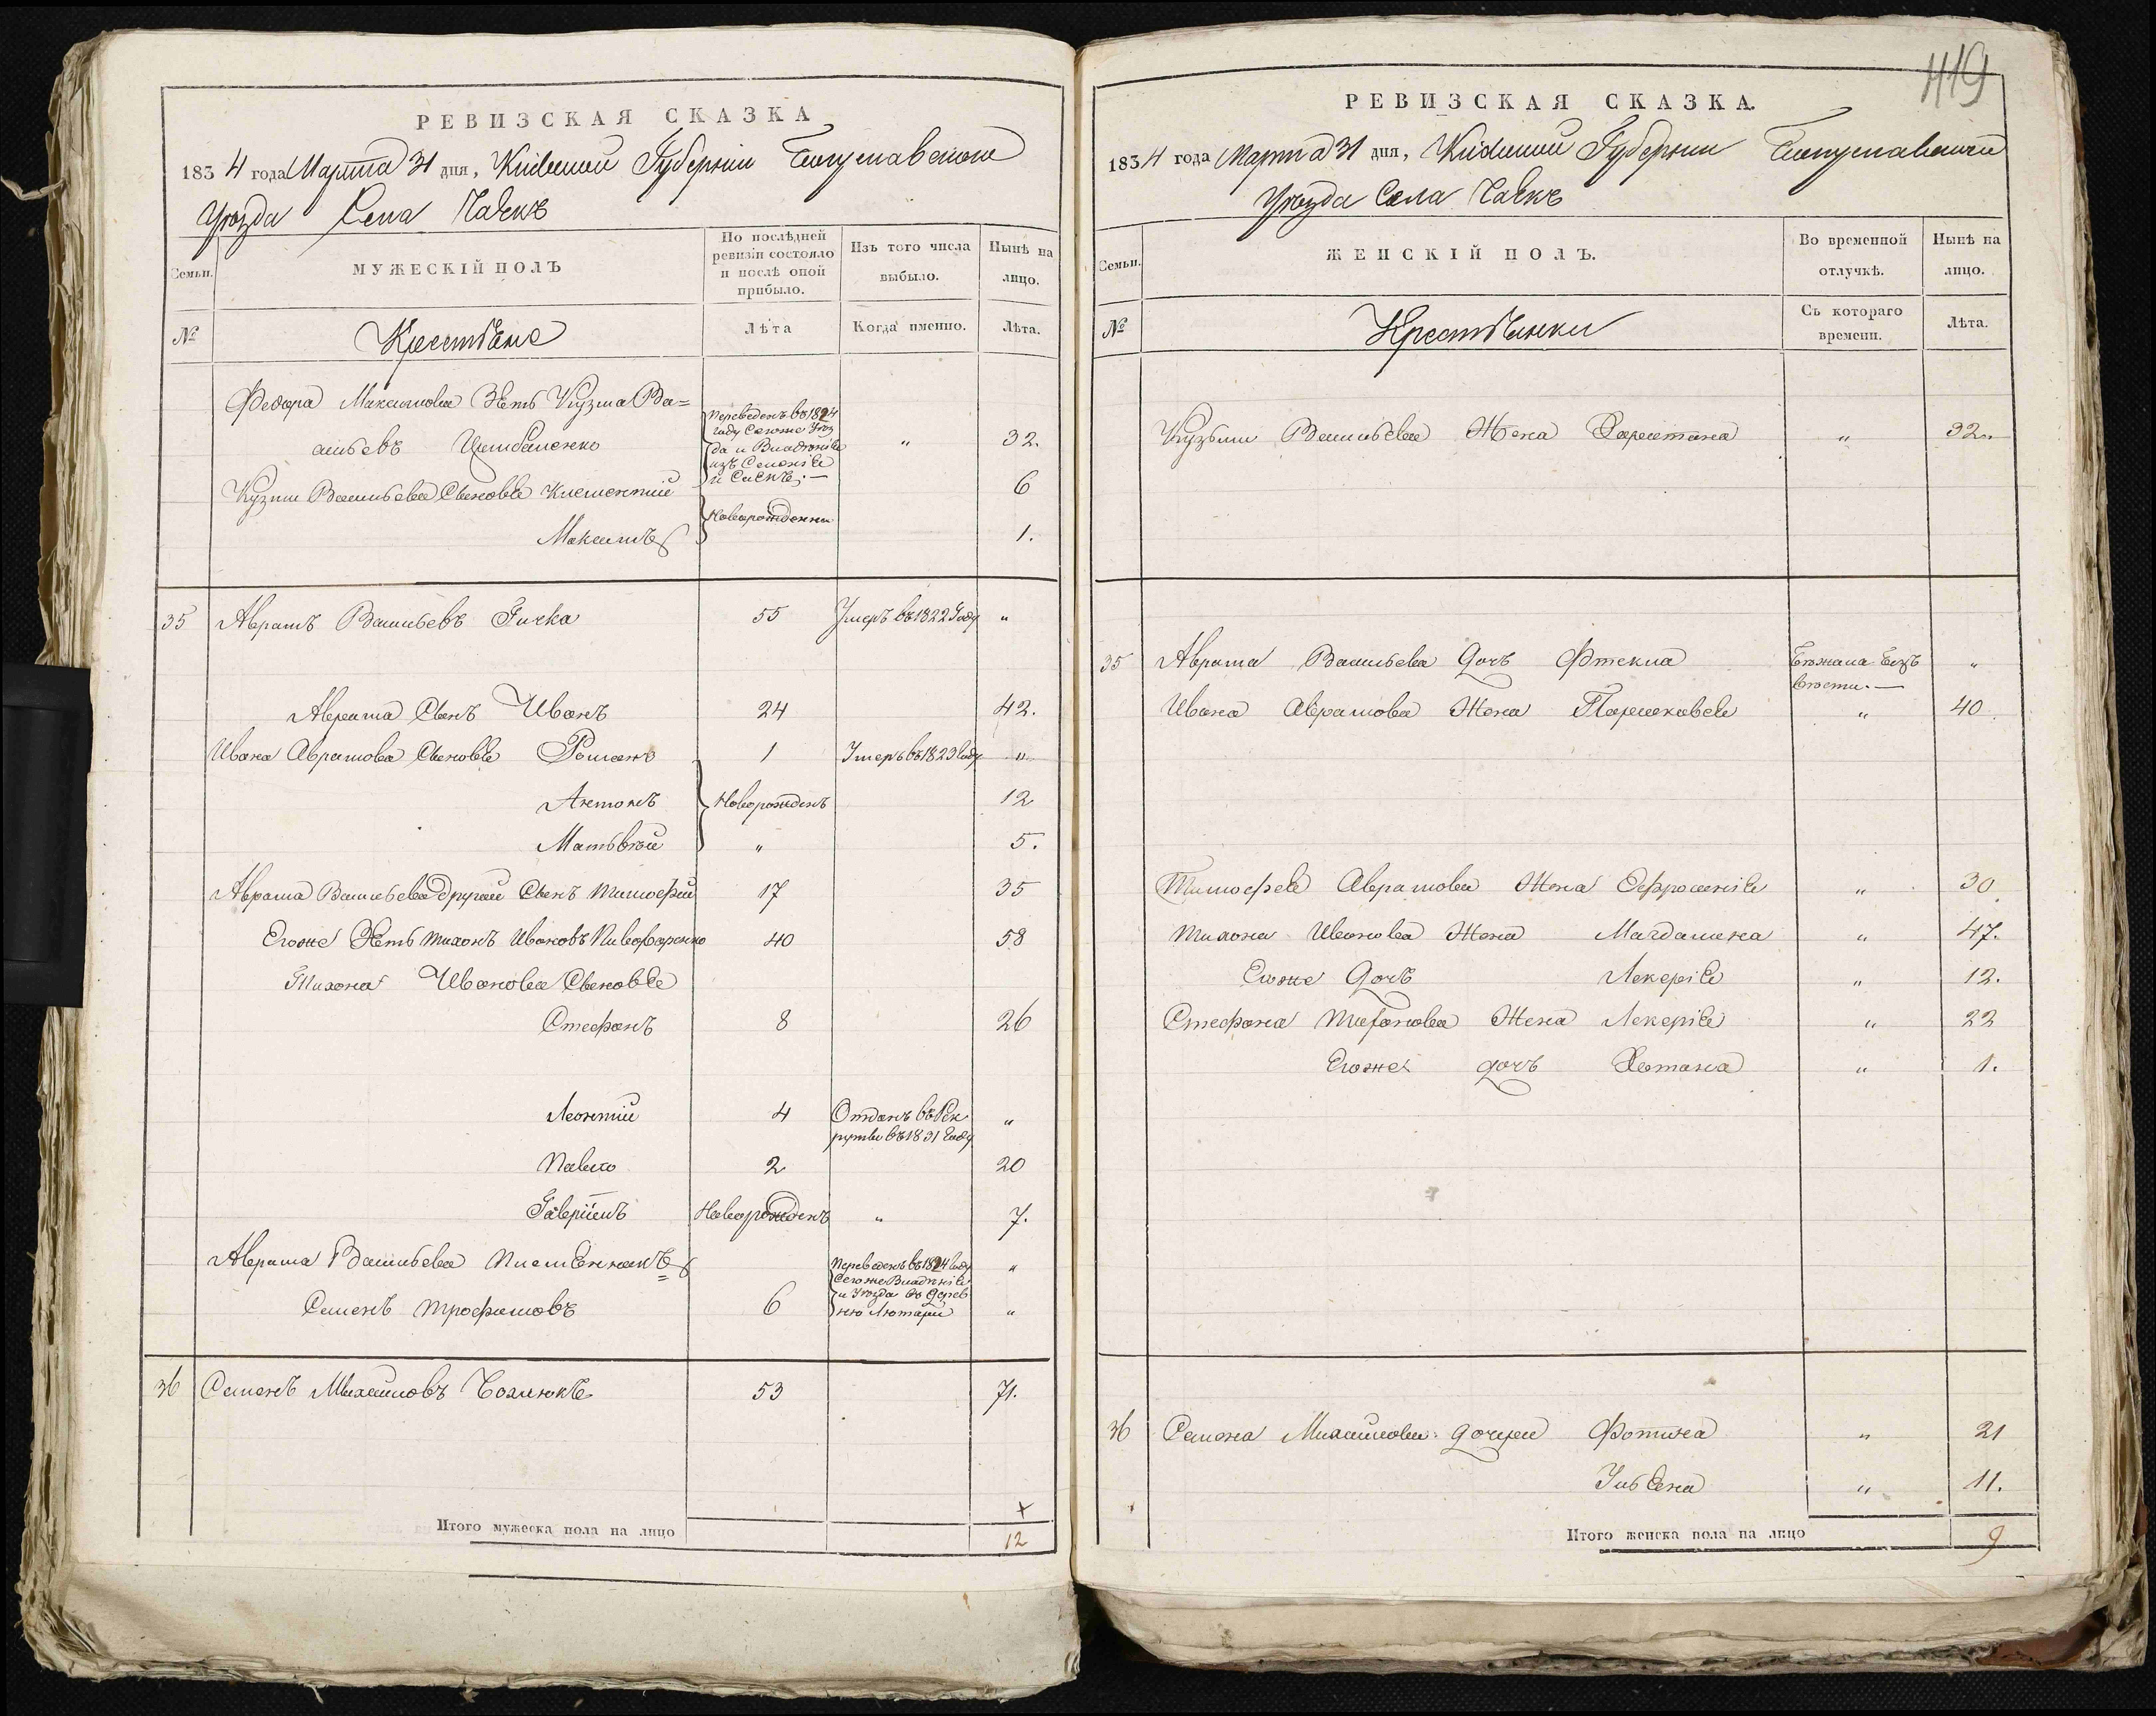 419
РЕВИЗСКАЯ СКАЗКА
1834 года Марта 31 дня, Киевской Губернии Богуславского
Уѣзда Села Чаекъ
Семьи.
МУЖЕСКІЙ ПОЛЪ
По послѣдней ревизіи состояло и послѣ оной прибыло.
Изъ того числа выбыло.
Нынѣ на лицо.
№
Крестьяне
Лѣта
Когда именно.
Лѣта.
Федора Максимова Зять Кузма Ва=
сильевъ Цимбаленко
Переведенъ въ 1824
году Сегоже Уѣз
да и Владѣнія
изъ Селенія
" 32.
Кузмы Васильева Сыновья Климентий 6
Новорожденны
Максимъ 1.
35 Аврамъ Васильевъ Гичка 55 Умеръ въ 1822 Году "
Аврама Сынъ Иванъ 24 42.
Ивана Аврамова Сыновья Романъ 1 Умеръ въ 1823 Году "
Антонъ Новорожденъ 12
Матвѣй " 5.
Аврама Васильева другой Сынъ Тимофей 17 35
Егоже Зять Тихонъ Ивановъ Пивоваренко 40 58
Тихона Иванова Сыновья
Стефанъ 8 26
Леонтий 4 Отданъ въ Рек
руты въ 1831 Году "
Павло 2 20
Гавріилъ Новорожденъ " 7.
Аврама Васильева Племянникъ "
Семенъ Трофимовъ 6 "
Переведенъ въ 1824 Году
Сегоже Владѣнія
и Уѣзда въ Дерев
ню Лютари
36 Семенъ Михайловъ 53 71.
+
Итого мужеска пола на лицо 12
РЕВИЗСКАЯ СКАЗКА.
1834 года Марта 31 дня, Киевской Губернии Богуславского
Уѣзда Села Чаекъ
Семьи.
ЖЕНСКІЙ ПОЛЪ.
Во временной отлучкѣ.
Нынѣ на лицо.
№
Крестьянки
Съ котораго времени.
Лѣта.
Кузьмы Васильева Жена Харитина " 32.
35 Аврама Васильева Дочь Фтекла Бѣжала безъ "
вѣсти.—
Ивана Аврамова Жена Парасковья " 40.
Тимофея Аврамова Жена Ефросинія " 30.
Тихона Иванова Жена Магдалина " 47.
Егоже Дочь Лекерія " 12.
Стефана Тиханова Жена Лекерія " 22
Егоже дочь " 1.
36 Семена Михайлова дочери Фотина " 21
Ульяна " 11.
Итого женска пола на лицо 9